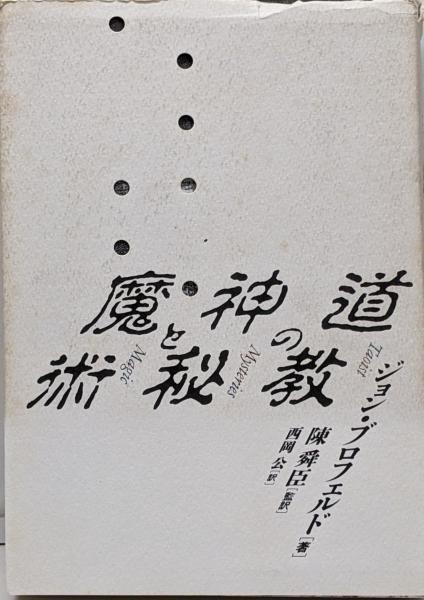 道教の神秘と魔術
Taoist Mysteries Magic
ジョン・ブロフェルド[著]
陳舜臣[監訳]
西岡公[訳]